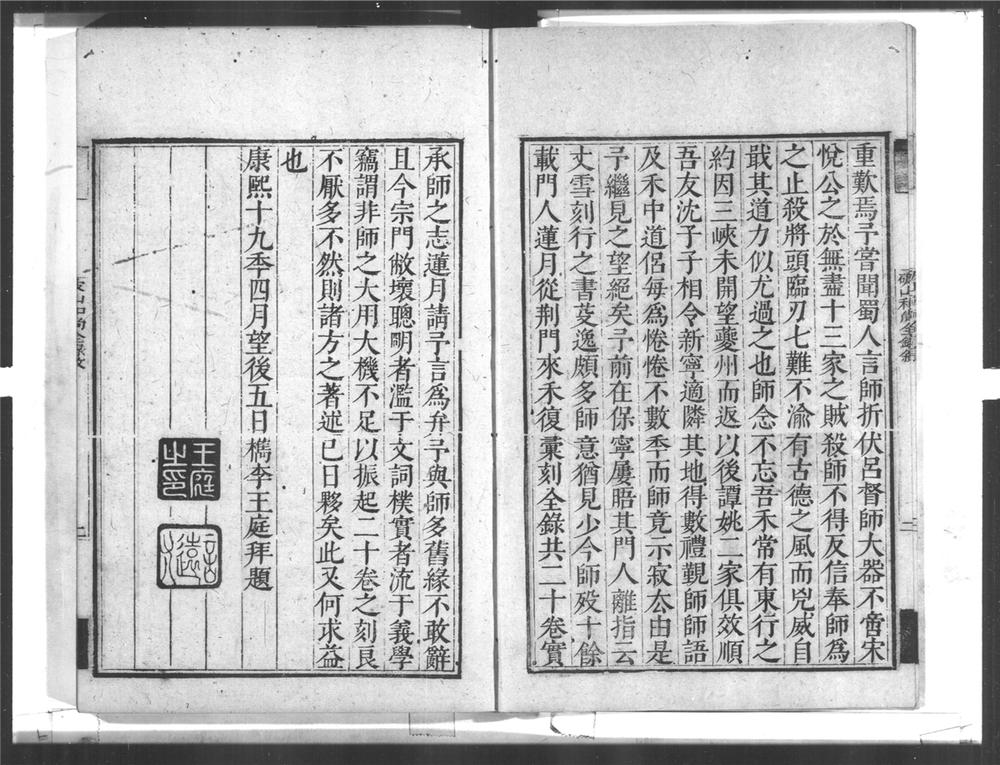 重歎焉予嘗聞蜀人言師折伏呂督師大器不啻宋
悅公之於無盡十三家之賊殺師不得反信奉師為
之止殺將頭臨刃七難不渝有古德之風而兇威自
戢其道力似尤過之也師念不忘吾禾常有東行之
約因三峽未開望夔州而返以後譚姚二家俱效順
吾友沈子子相令新寧適隣其地得數禮覲師師語
及禾中道侶每爲惓惓不數季而師竟示寂厺由是
予繼見之望絕矣予前在保寧屢晤其門人離指云
丈雪刻行之書芟逸頗多師意猶見少今師歿十餘
載門人蓮月從荆門來禾復彙刻全錄共二十卷實
承師之志蓮月請予言爲弁予與師多舊緣不敢辭
且今宗門敝壞聰明者濫于文詞樸實者流于義學
竊謂非師之大用大機不足以振起二十卷之刻良
不厭多不然則諸方之著述已日夥矣此又何求益
也
康熙十九季四月望後五日檇李王庭拜題
王庭之印